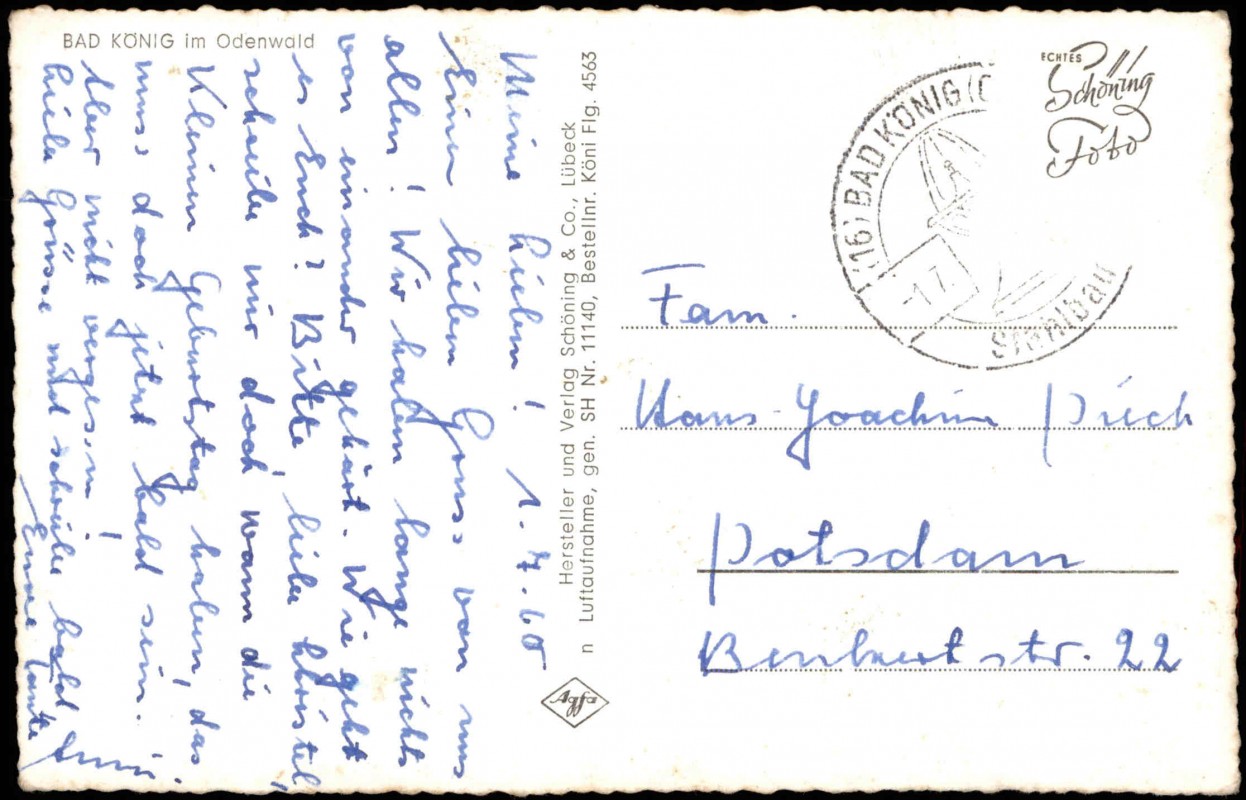 BAD KÖNIG im Odenwald
Meine Lieben! 1.7.60
Einen lieben Gruss von uns
allen! Wir haben lange nichts
von einander gehört. Wie geht
es Euch? Bitte, liebe Christel,
schreibe mir doch wann die
Kleinen Geburtstag haben, das
muss doch jetzt bald sein.
Aber nicht vergessen!
Viele Grüsse und schreibe bald
Eure Tante
Hersteller und Verlag Schöning & Co., Lübeck
n Luftaufnahme, gen. SH Nr. 11140, Bestellnr. Köni Flg. 4563
Agfa
(16) BAD KÖNIG (O
-1.7
Stahlbad
ECHTES
Schöning
Foto
Fam.
Hans-Joachim
Potsdam
str. 22